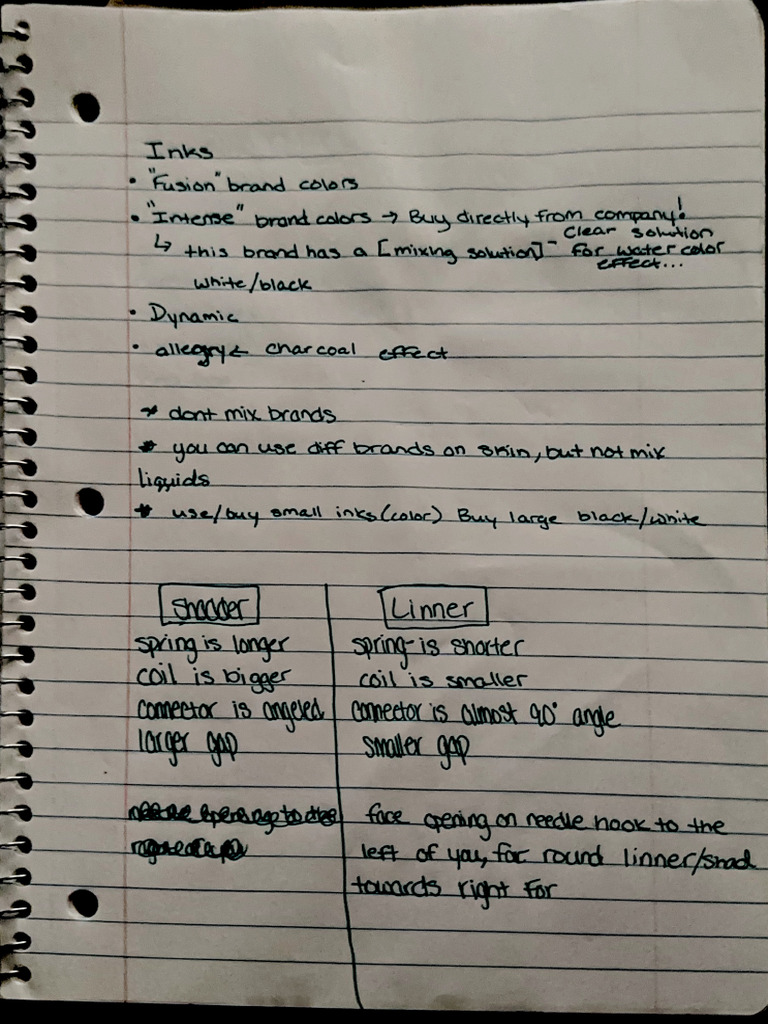 Inks
• "Fusion" brand colors
• "Intense" brand colors → Buy directly from company!
↳ this brand has a [mixing solution] - clear solution
for water color
effect...
white/black
• Dynamic
• allegry ← charcoal effect
* dont mix brands
* you can use diff brands on skin, but not mix
liquids
* use/buy small inks (color) Buy large black/white
Shadder
spring is longer
coil is bigger
connector is angeled
larger gap
Linner
spring is shorter
coil is smaller
connector is almost 90° angle
smaller gap
face opening on needle hook to the
left of you, for round linner/shad
towards right for